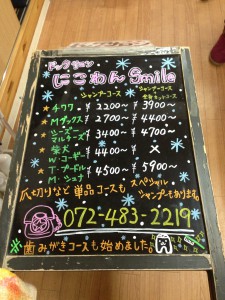 ドッグサロン
にこわん Smile
シャンプーコース
シャンプーコース
全身カットコース
チワワ ¥2200〜 ¥3900〜
Mダックス ¥2700〜 ¥4400〜
シーズー
マルチーズ ¥3400〜 ¥4700〜
柴犬
W・コーギー ¥4400〜 ×
T・プードル
M・シュナ ¥4500〜 ¥5900〜
爪切りなど単品コースも
スペシャル
シャンプーもあります。
072-483-2219
歯みがきコースも始めました。